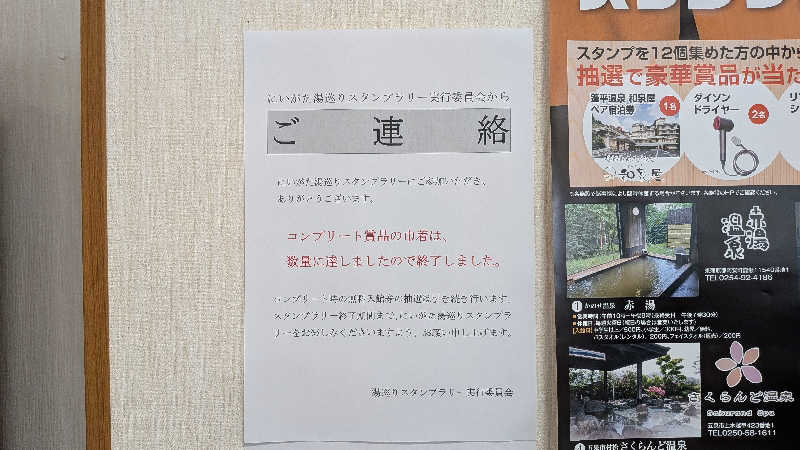 にいがた湯巡りスタンプラリー実行委員会から
ご連絡
にいがた湯巡りスタンプラリーにご参加いただき、
ありがとうございます。
コンプリート賞品の巾着は、
数量に達しましたので終了しました。
コンプリート時の無料入館券の抽選は引き続き行います。
スタンプラリー終了期間まで、にいがた湯巡りスタンプラ
リーをお楽しみくださいますよう、お願い申し上げます。
湯巡りスタンプラリー実行委員会
スタンプを12個集めた方の中か
抽選で豪華賞品が当た
蓬平温泉 和泉屋
ペア宿泊券
1名
ダイソン
ドライヤー
2名
和泉屋
赤湯
温泉
TEL0254-92-4186
1 かのせ温泉 赤湯
さくらんど温泉
Sakurand Spa
五泉市土木塚423番地1
TEL0250-58-1611
さくらんど温泉